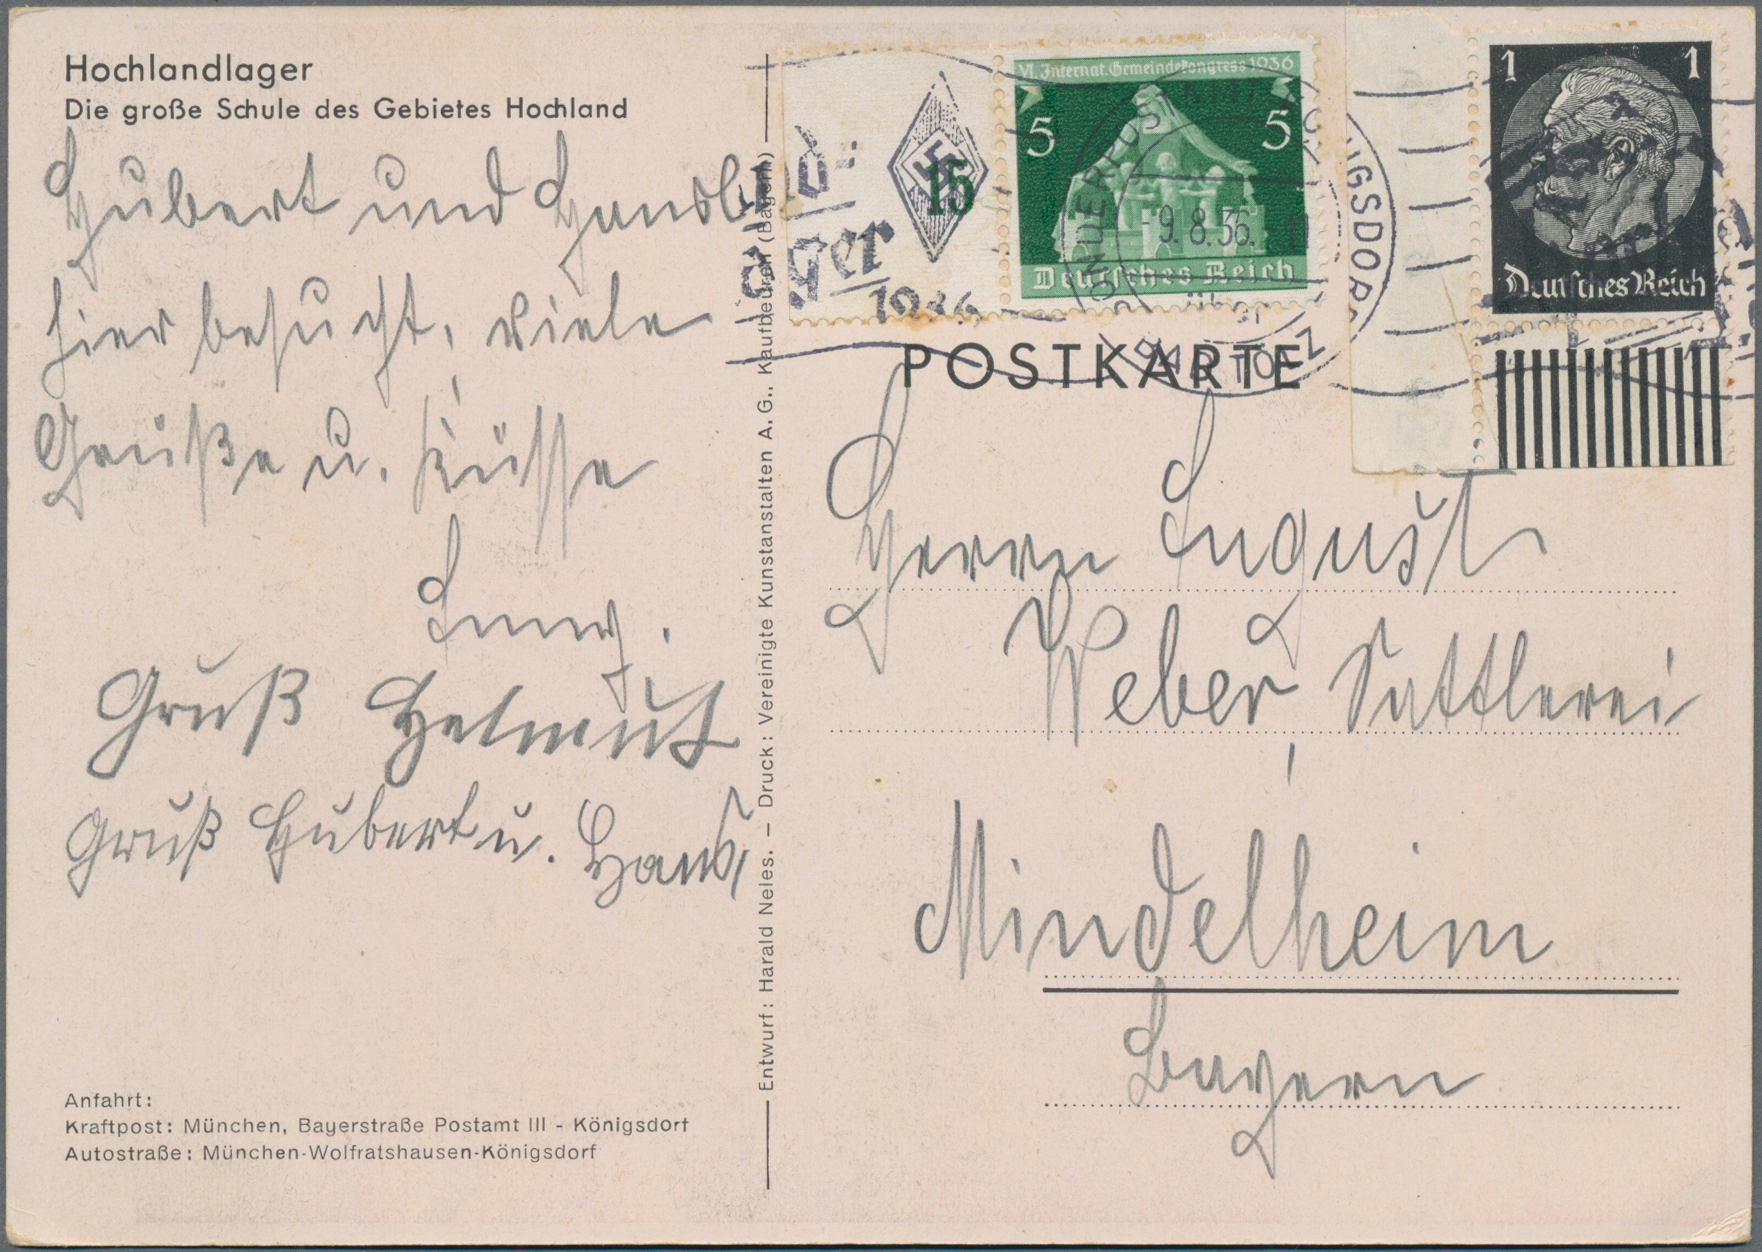 Hochlandlager
Die große Schule des Gebietes Hochland
Hubert und Hansl
hier besucht, viele
Grüße u. Küsse
Gruß Helmut
Gruß Hubert u. Hans
Anfahrt:
Kraftpost: München, Bayerstraße Postamt III - Königsdorf
Autostraße: München-Wolfratshausen-Königsdorf
Entwurf: Harald Neles. – Druck: Vereinigte Kunstanstalten A. G., Kaufbeuren (Bayern)
15
1936
VI. Internat. Gemeindekongress 1936
5 5
Deutsches Reich
-9.8.36.
1 1
Deutsches Reich
POSTKARTE
Herrn August
Weber, Sattlerei
Mindelheim
Bayern